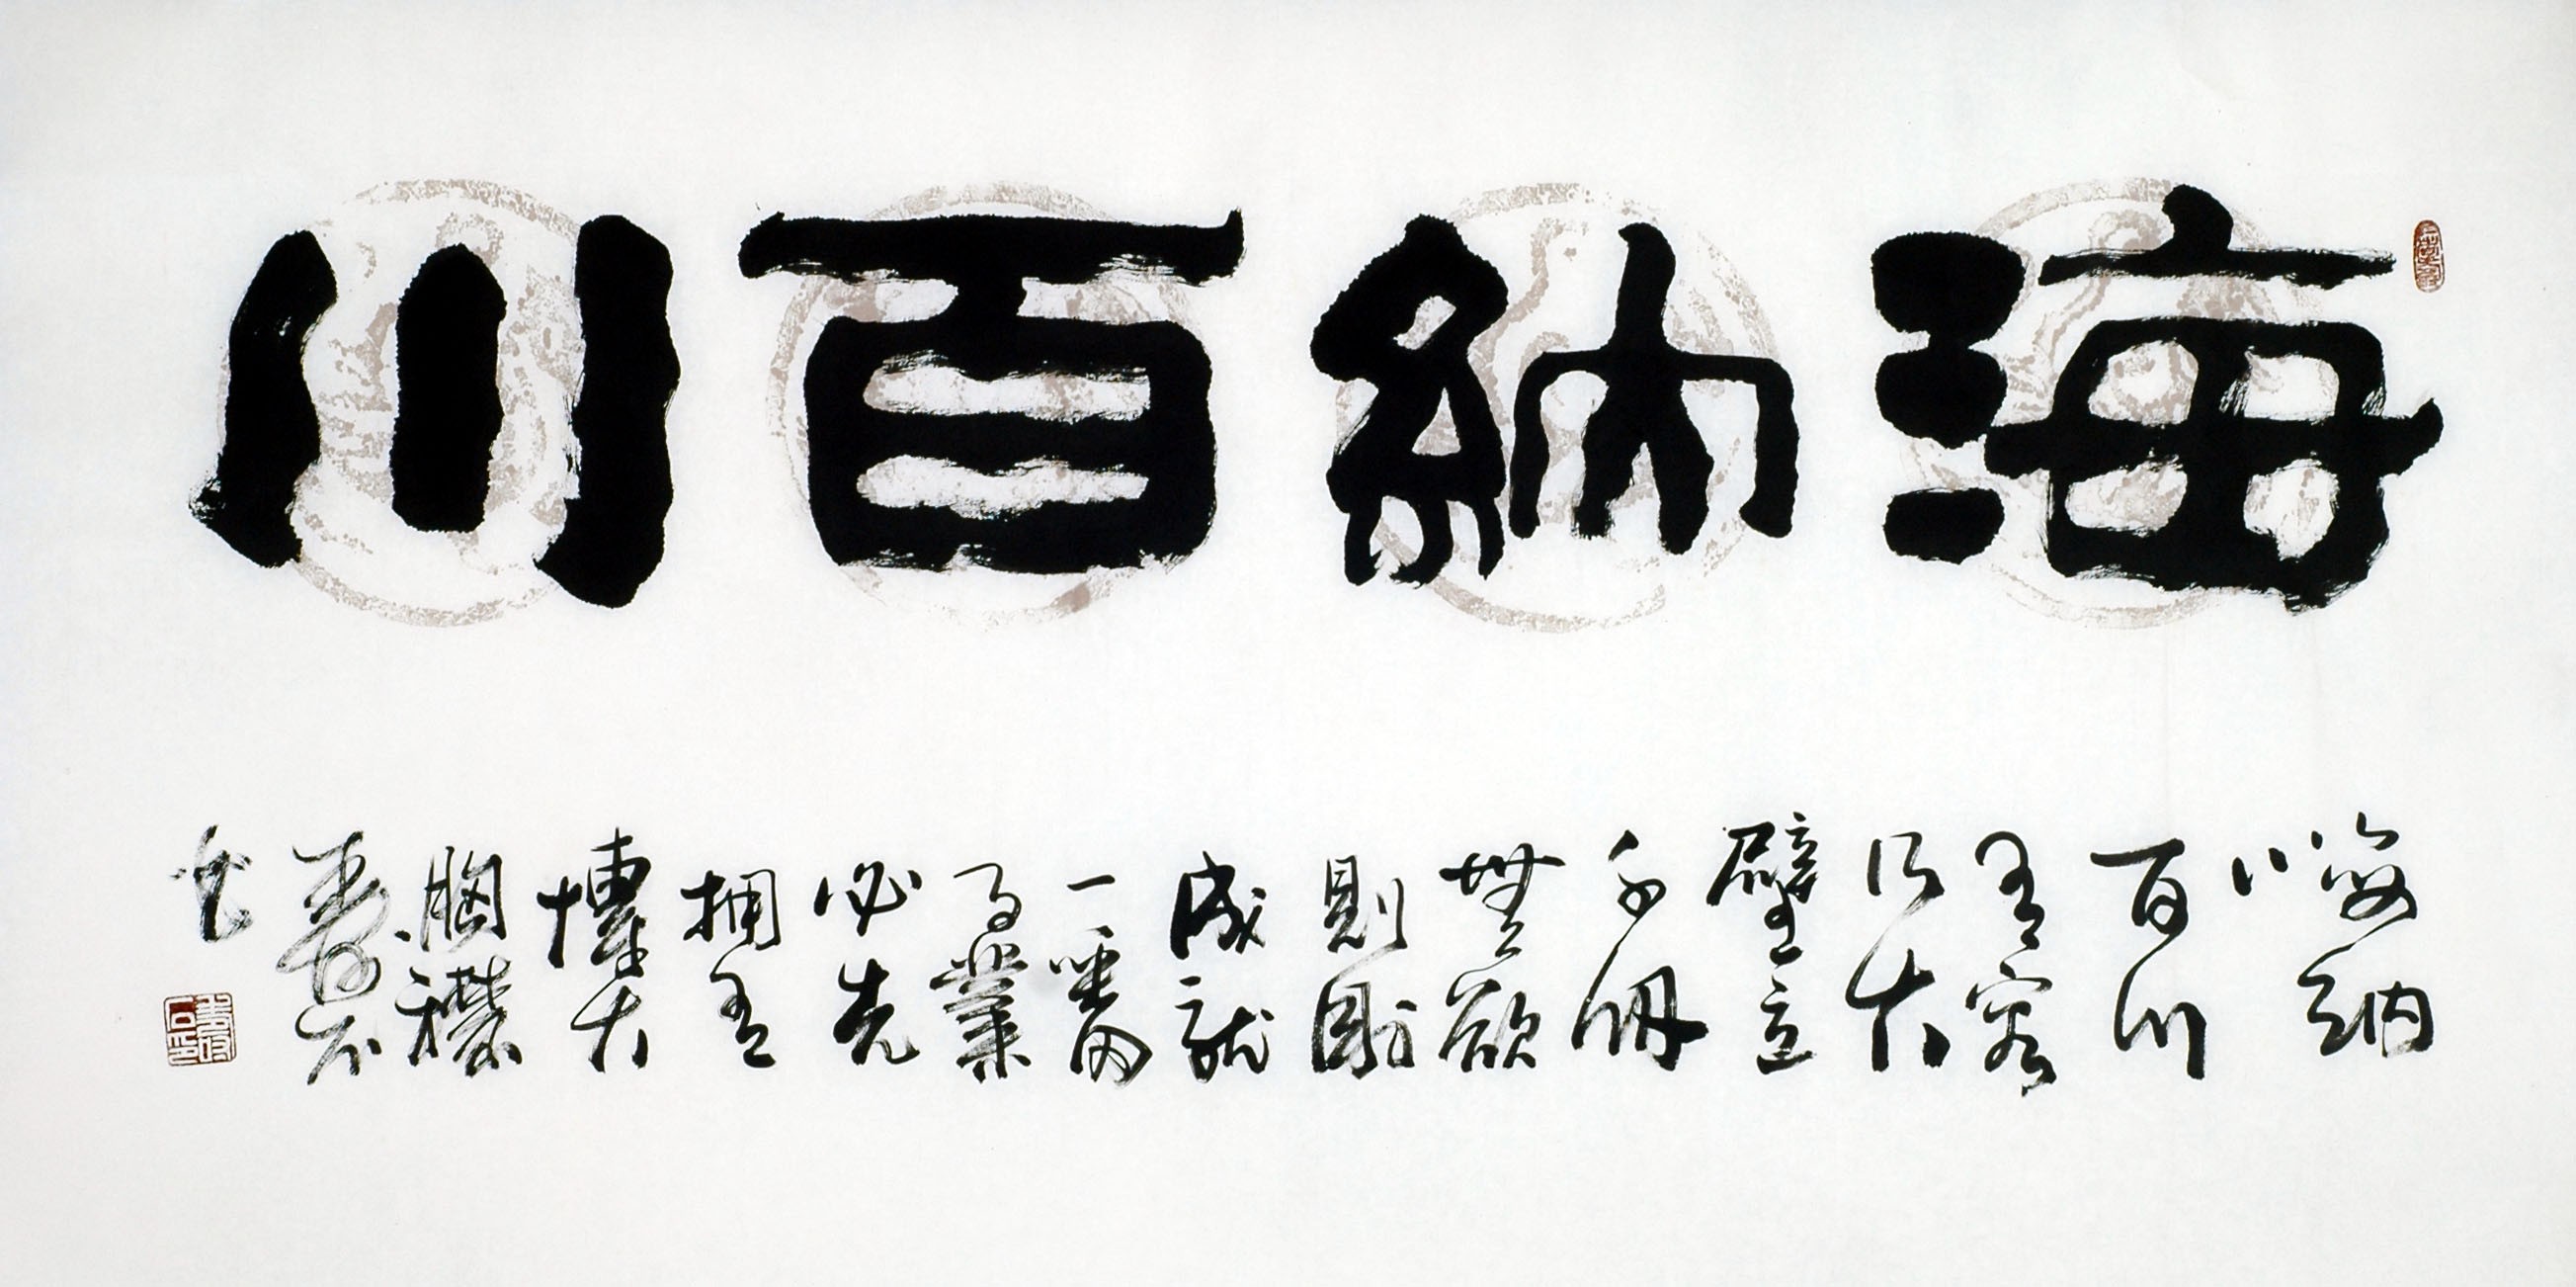 海納百川
海納
百川
有容
乃大
壁立
千仞
無欲
則剛
成就
一番
事業
必先
拥有
博大
胸襟
壽石
书